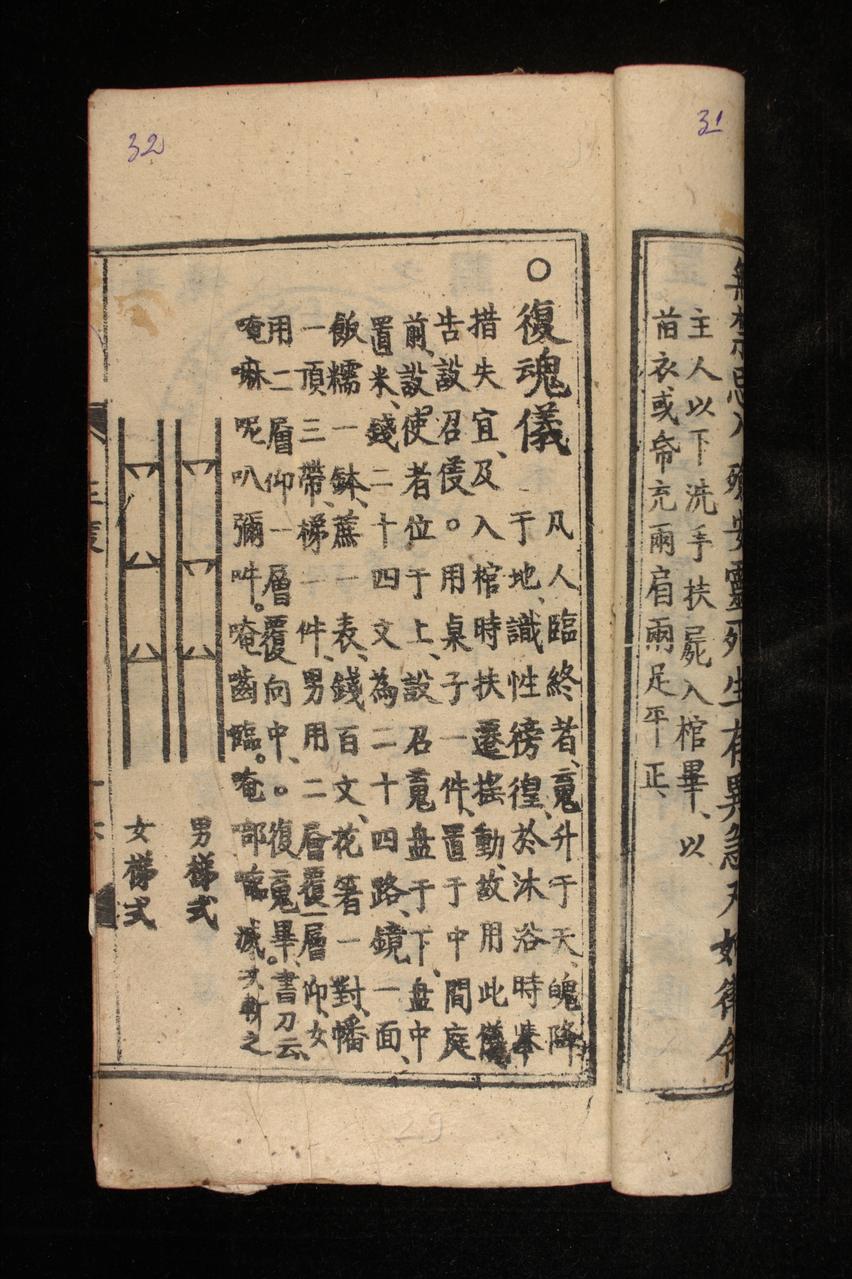 31
主人以下洗手扶屍入棺畢、以
苗衣或帋充兩肩兩足平正、
32
○復魂儀
凡人臨終者、䰟升于天、魄降
于地、識性徬徨、於沐浴時
措失宜、及入棺時扶遷搖動、故用此儀
告設召䰟。用桌子一件、置于中間庭
前、設使者位于上、設召䰟盘于下、盘中
置米、錢二十四文為二十四路、鏡一面、
飯糯一鉢、蔗一表、錢百文、花箸一對、幡
一頂三帶、梯一件、男用二層覆一層仰、女
用二層仰一層覆向中、。復䰟畢、書刀云、
唵嘛呢叭彌吽。唵嚙臨。唵部臨
男梯式
女梯式
29